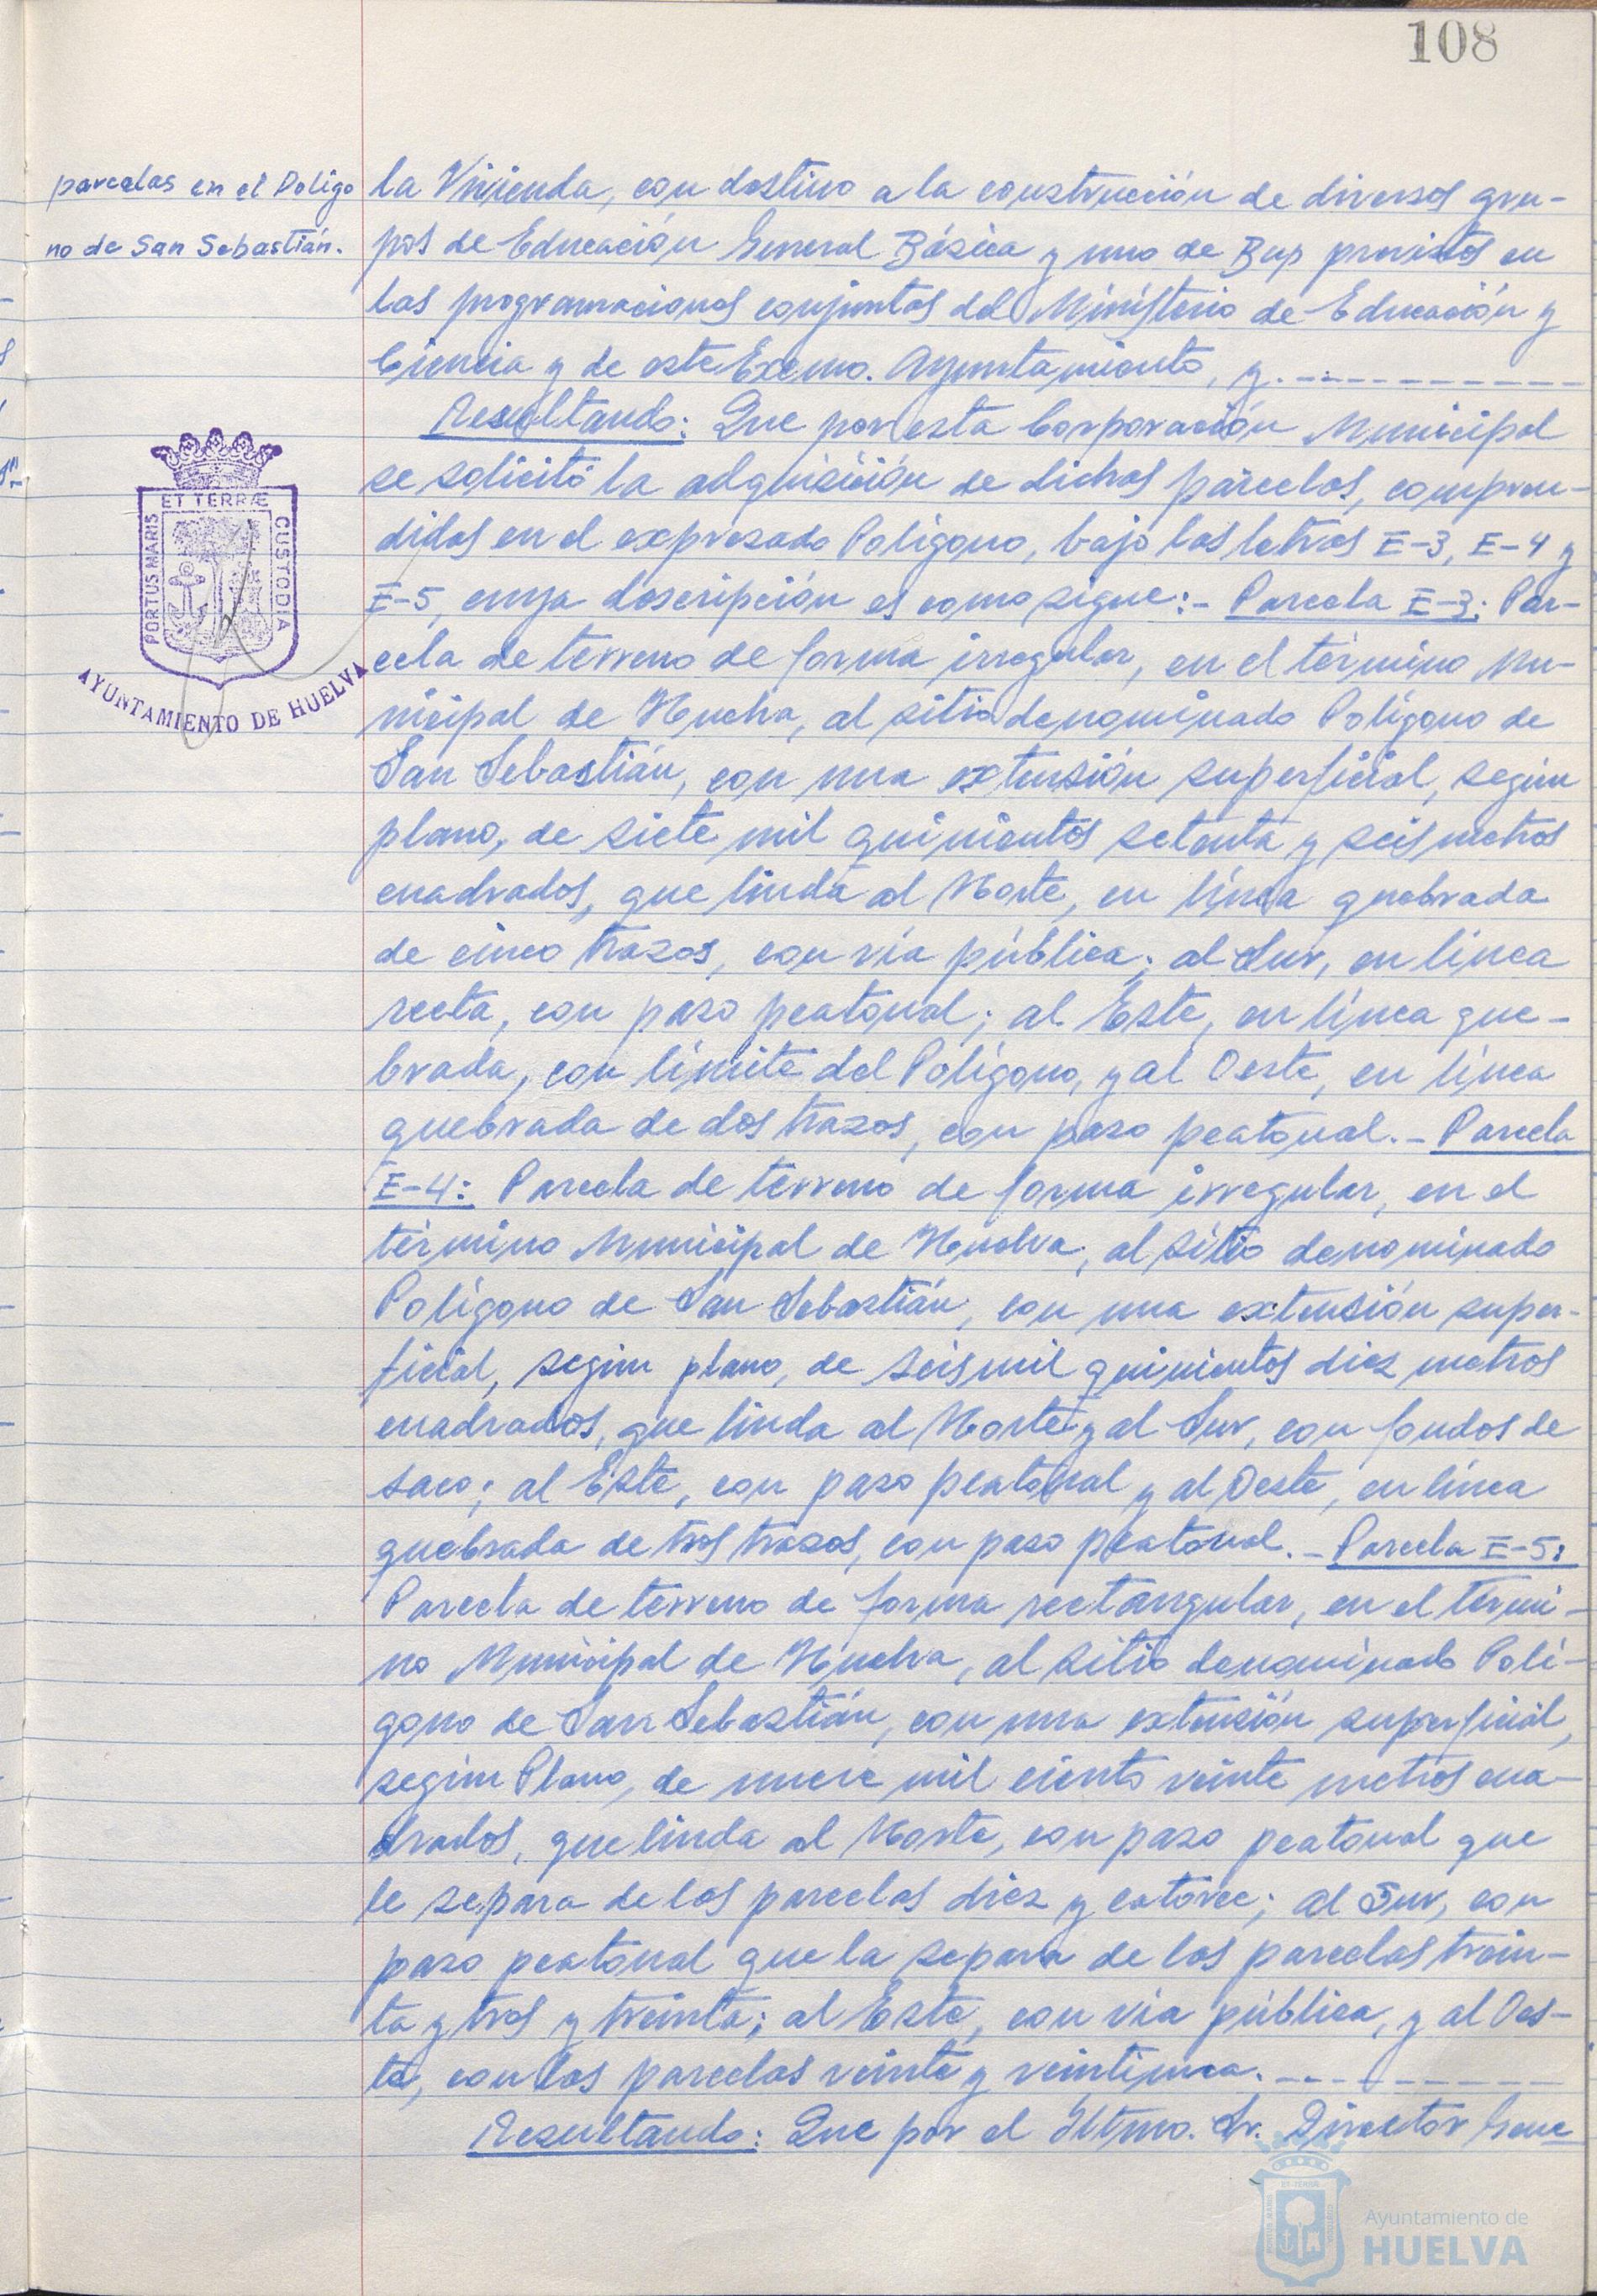 108
parcelas en el Polígo
no de San Sebastián.
la Vivienda, con destino a la construcción de diversos gru-
pos de Educación General Básica y uno de Bup previstos en
las programaciones conjuntas del Ministerio de Educación y
Ciencia y de este Excmo. Ayuntamiento, y.
Resultando: Que por esta Corporación Municipal
se solicitó la adquisición de dichas parcelas, compren-
didas en el expresado Polígono, bajo las letras E-3, E-4 y
E-5, cuya descripción es como sigue:- Parcela E-3: Par-
cela de terreno de forma irregular, en el término Mu-
nicipal de Huelva, al sitio denominado Polígono de
San Sebastián, con una extensión superficial, según
plano, de siete mil quinientos setenta y seis metros
cuadrados, que linda al Norte, en línea quebrada
de cinco trazos, con vía pública; al Sur, en línea
recta, con paso peatonal; al Este, en línea que-
brada, con límite del Polígono, y al Oeste, en línea
quebrada de dos trazos, con paso peatonal.- Parcela
E-4: Parcela de terreno de forma irregular, en el
término Municipal de Huelva, al sitio denominado
Polígono de San Sebastián, con una extensión super-
ficial, según plano, de seis mil quinientos diez metros
cuadrados, que linda al Norte y al Sur, con fondos de
saco; al Este, con paso peatonal y al Oeste, en línea
quebrada de tres trazos, con paso peatonal.- Parcela E-5:
Parcela de terreno de forma rectangular, en el térmi-
no Municipal de Huelva, al sitio denominado Polí-
gono de San Sebastián, con una extensión superficial,
según Plano, de nueve mil ciento veinte metros cua-
drados, que linda al Norte, con paso peatonal que
le separa de las parcelas diez y catorce; al Sur, con
paso peatonal que la separa de las parcelas trein-
ta y tres y treinta; al Este, con vía pública, y al Oes-
te, con las parcelas veinte y veintiuna.
Resultando: Que por el Iltmo. Sr. Director Gene
PORTUS MARIS
ET TERRÆ
CUSTODIA
AYUNTAMIENTO DE HUELVA
Ayuntamiento de
HUELVA